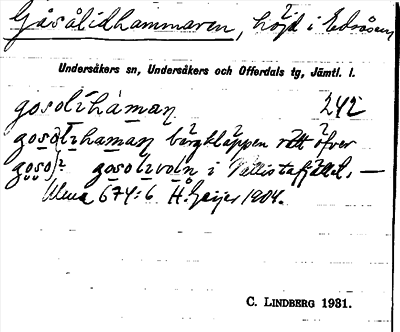 Gåsålidhammaren, höjd i Edsåsen
Undersåkers sn, Undersåkers och Offerdals tg, Jämtl. l.
gosolihàman 242
gosolihaman bärgklappen rätt öfver
goso)² gosolivoln i Vällistafjället. —
674:6 H. Geijer 1904.
C. LINDBERG 1931.